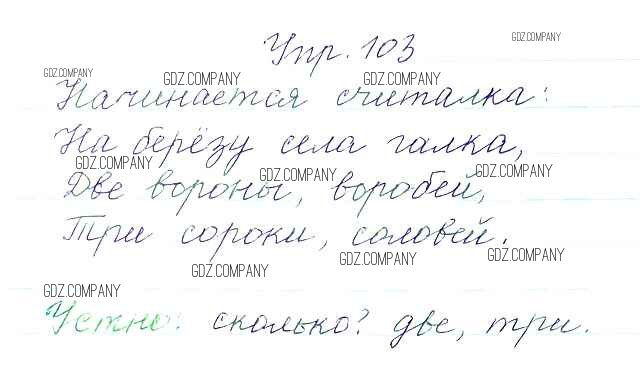 Упр. 103
GDZ.COMPANY
GDZ.COMPANY
GDZ.COMPANY
GDZ.COMPANY
Начинается считалка:
На берёзу села галка,
GDZ.COMPANY
GDZ.COMPANY
GDZ.COMPANY
Две вороны, воробей,
Три сороки, соловей.
GDZ.COMPANY
GDZ.COMPANY
GDZ.COMPANY
GDZ.COMPANY
Устно: сколько? две, три.